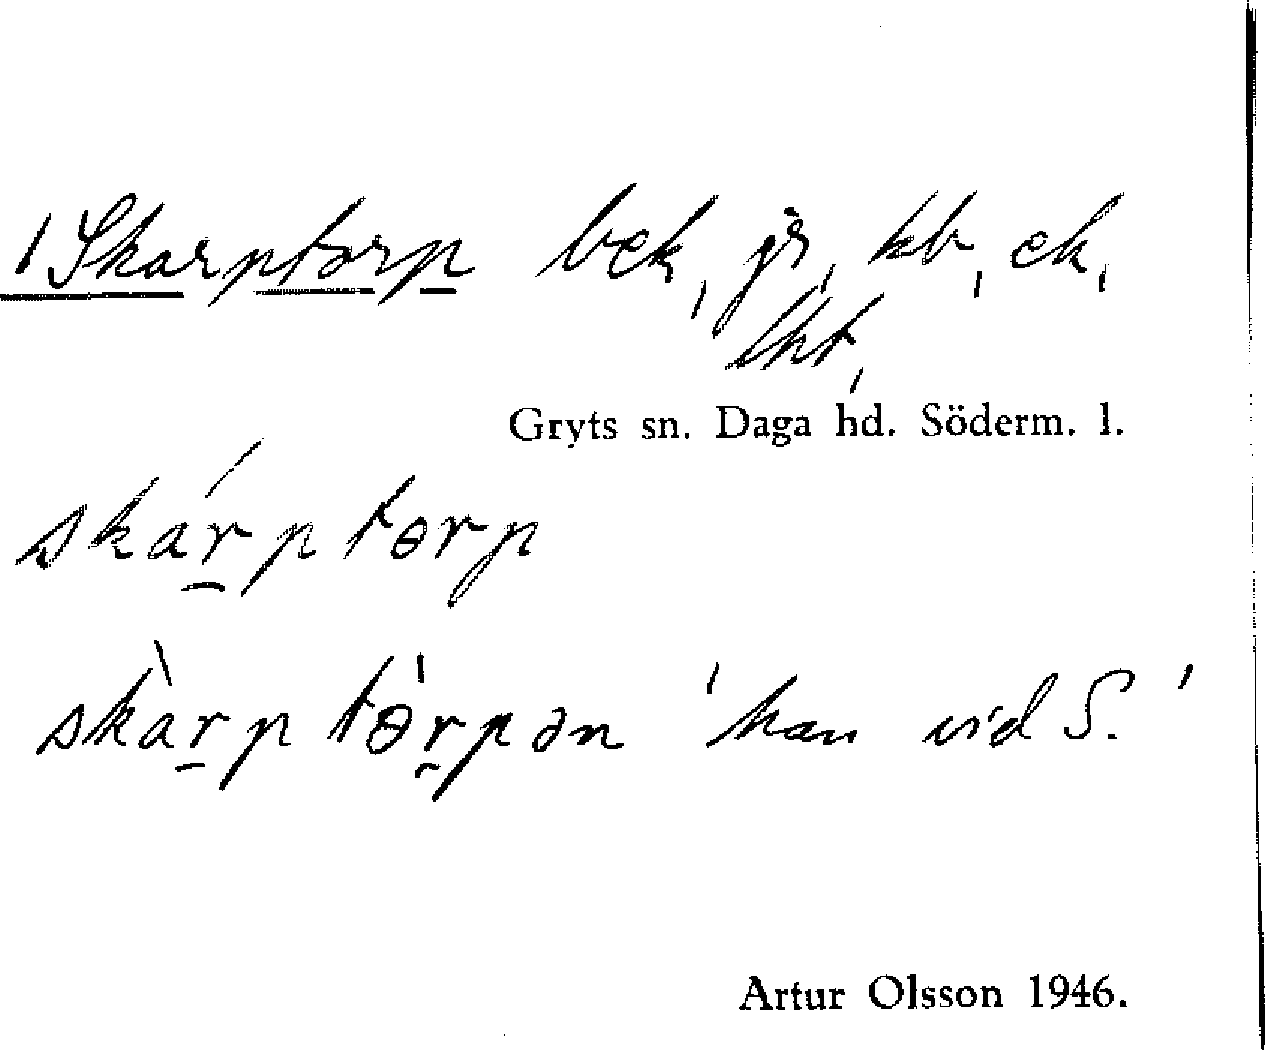 1 Skarptorp bek, jr, kb, ek,
lkt,
Gryts sn. Daga hd. Söderm. l.
skárptɵrp
skàrptɵ̀rpən 'han vid S.'
Artur Olsson 1946.